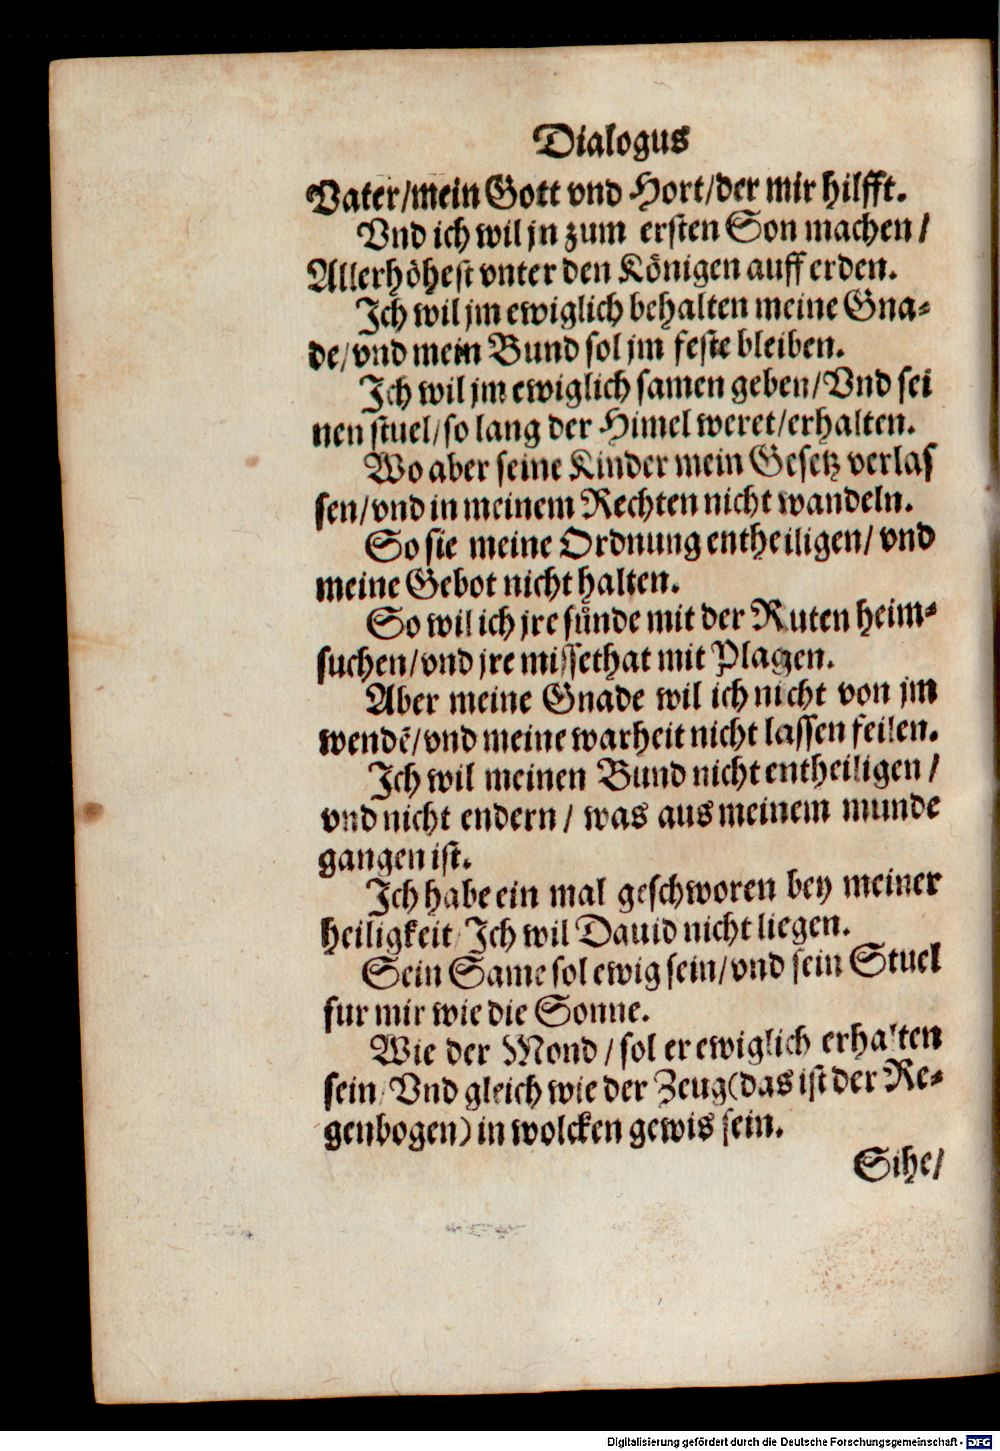 Dialogus
Vater/mein Gott vnd Hort/der mir hilfft.
Vnd ich wil jn zum ersten Son machen/
Allerhöhest vnter den Königen auff erden.
Ich wil jm ewiglich behalten meine Gna-
de/vnd mein Bund sol jm feste bleiben.
Ich wil jm ewiglich samen geben/Vnd sei
nen stuel/so lang der Himel weret/erhalten.
Wo aber seine Kinder mein Gesetz verlas
sen/vnd in meinem Rechten nicht wandeln.
So sie meine Ordnung entheiligen/vnd
meine Gebot nicht halten.
So wil ich jre sünde mit der Ruten heim-
suchen/vnd jre missethat mit Plagen.
Aber meine Gnade wil ich nicht von jm
wendē/vnd meine warheit nicht lassen feilen.
Ich wil meinen Bund nicht entheiligen/
vnd nicht endern/was aus meinem munde
gangen ist.
Ich habe ein mal geschworen bey meiner
heiligkeit/Ich wil Dauid nicht liegen.
Sein Same sol ewig sein/vnd sein Stuel
fur mir wie die Sonne.
Wie der Mond/sol er ewiglich erhalten
sein/Vnd gleich wie der Zeug(das ist der Re-
genbogen) in wolcken gewis sein.
Sihe/
Digitalisierung gefördert durch die Deutsche Forschungsgemeinschaft - DFG